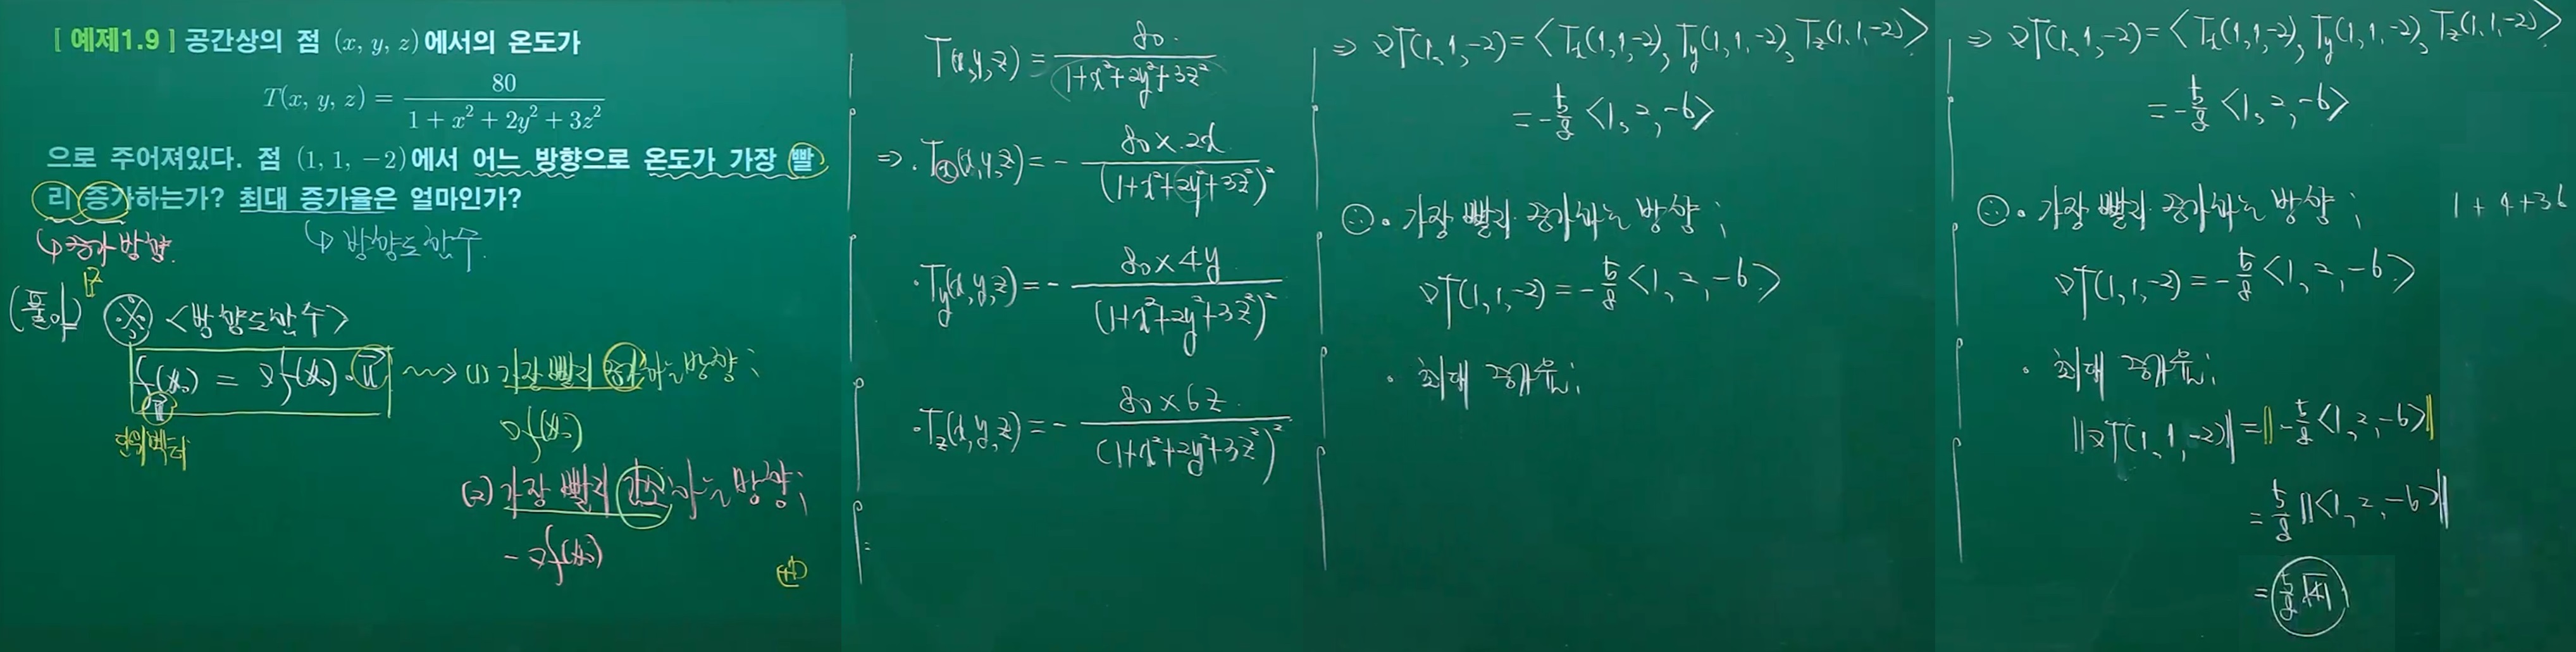 [ 예제1.9 ] 공간상의 점 (x, y, z)에서의 온도가
T(x, y, z) = 80 / (1 + x² + 2y² + 3z²)
으로 주어져있다. 점 (1, 1, −2)에서 어느 방향으로 온도가 가장 빨
리 증가하는가? 최대 증가율은 얼마인가?
↳ 증가 방향.
↳ 방향도함수.
(풀이) ※ <방향도함수>
f_u(x₀) = ∇f(x₀)·u ⇝ (1) 가장 빨리 증가하는 방향 ;
단위벡터
∇f(x₀)
(2) 가장 빨리 감소하는 방향 ;
− ∇f(x₀)
T(x,y,z) = 80 / (1+x²+2y²+3z²)
⇒ · Tx(x,y,z) = − 80×2x / (1+x²+2y²+3z²)²
· Ty(x,y,z) = − 80×4y / (1+x²+2y²+3z²)²
· Tz(x,y,z) = − 80×6z / (1+x²+2y²+3z²)²
⇒ ∇T(1,1,−2) = <Tx(1,1,−2), Ty(1,1,−2), Tz(1,1,−2)>
= −5/8 <1, 2, −6>
∴ · 가장 빨리 증가하는 방향 ;
∇T(1,1,−2) = −5/8 <1, 2, −6>
· 최대 증가율 ;
⇒ ∇T(1,1,−2) = <Tx(1,1,−2), Ty(1,1,−2), Tz(1,1,−2)>
= −5/8 <1, 2, −6>
∴ · 가장 빨리 증가하는 방향 ;
1 + 4 + 36
∇T(1,1,−2) = −5/8 <1, 2, −6>
· 최대 증가율 ;
‖∇T(1,1,−2)‖ = ‖−5/8 <1, 2, −6>‖
= 5/8 ‖<1, 2, −6>‖
= 5/8 √41